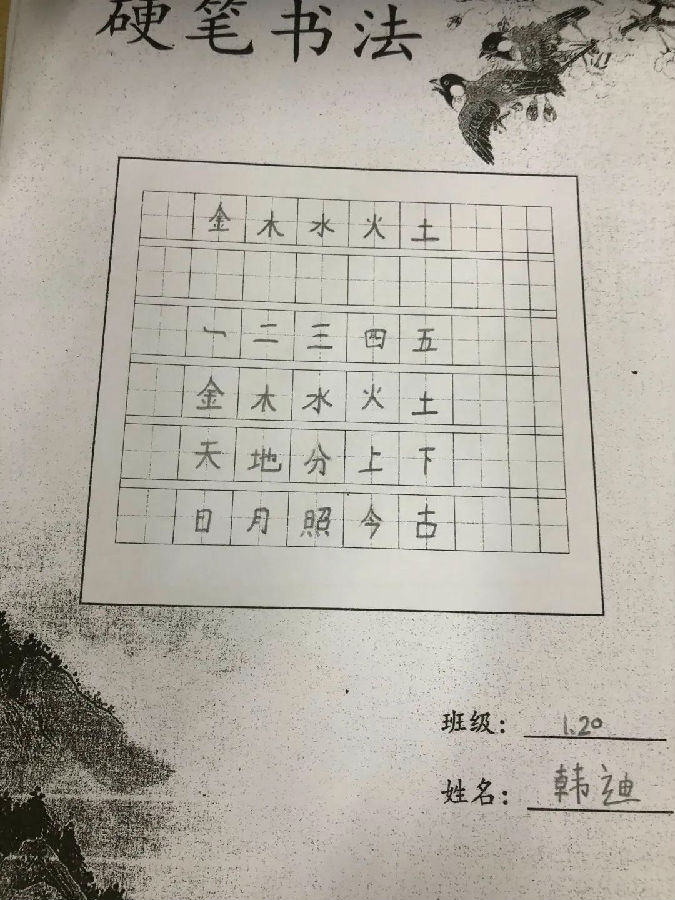 硬笔书法
金木水火土
一二三四五
金木水火土
天地分上下
日月照今古
班级：1.20
姓名：韩迪